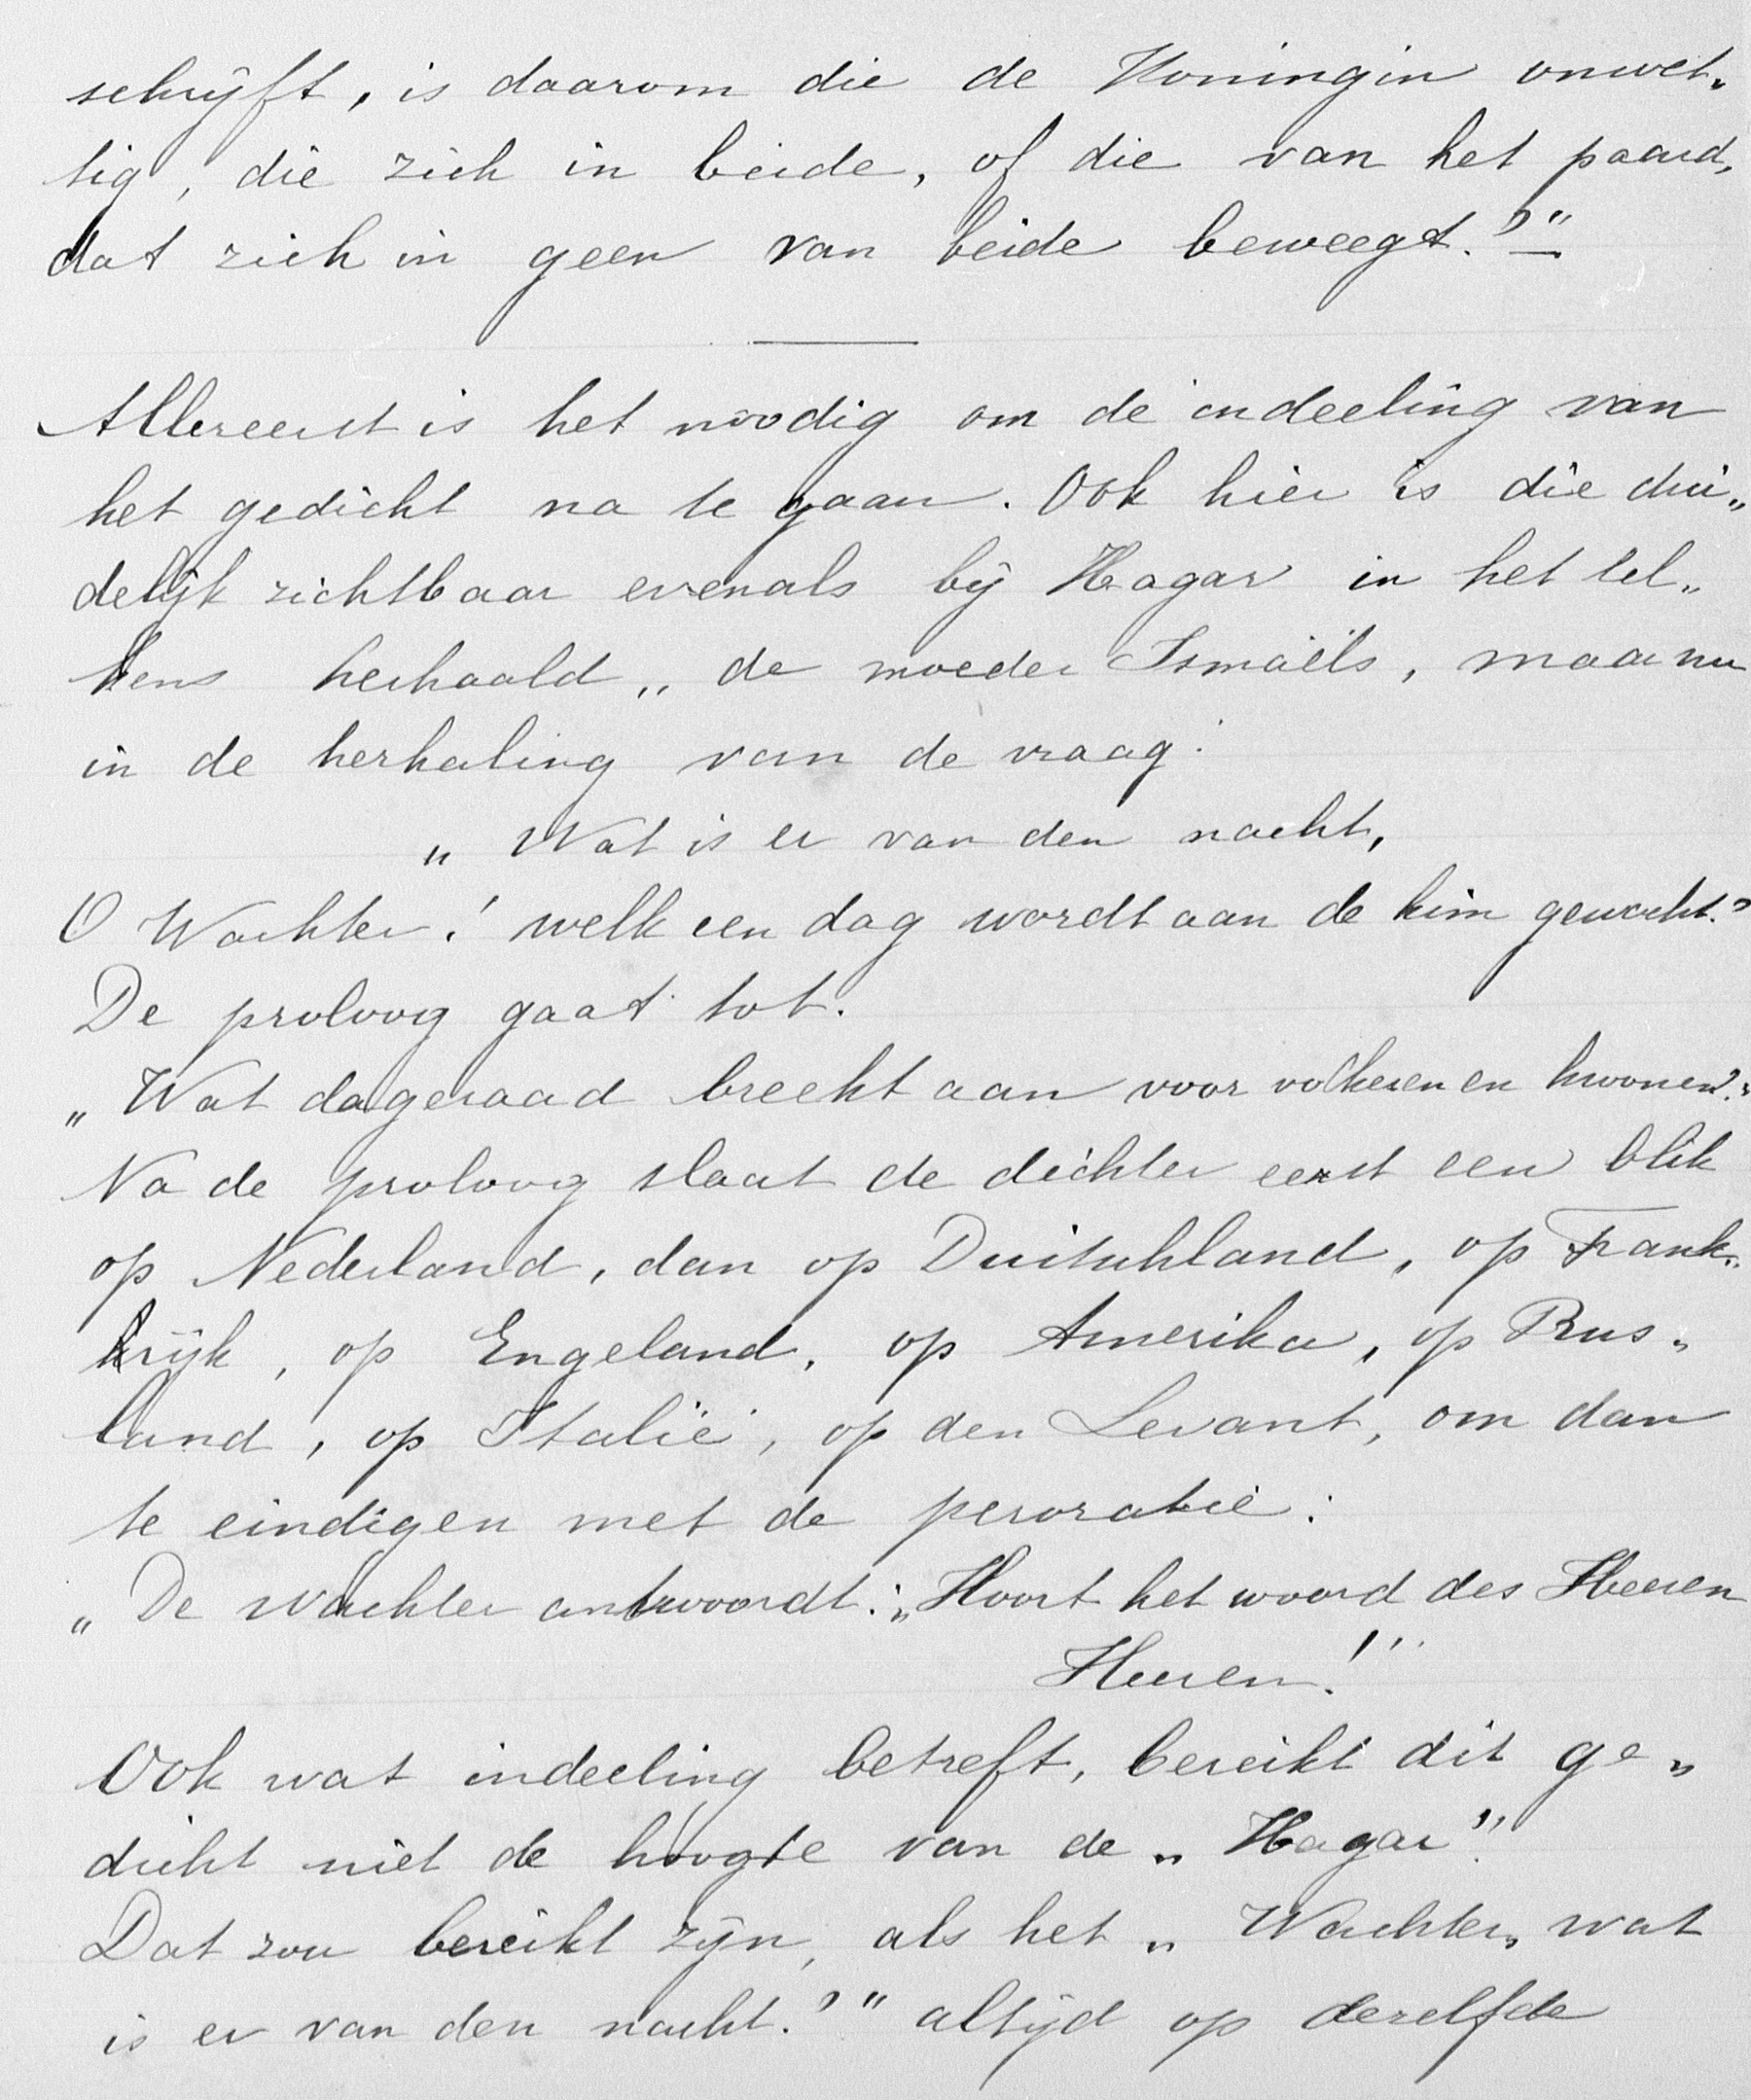 schrijft, is daarom die de Koningin onwet„
tig, die zich in beide, of die van het paard,
dat zich in geen van beide beweegt?"
Allereerst is het noodig om de indeeling van
het gedicht na te gaan. Ook hier is die dui„
delijk zichtbaar evenals bij Hagar in het tel„
kens herhaald „ de moeder Ismaëls, maar nu
in de herhaling van de vraag:
„ Wat is er van den nacht,
O Wachter! welk een dag wordt aan de kim gewacht?
De proloog gaat tot.
„ Wat dageraad breekt aan voor volkeren en kroonen?"
Na de proloog slaat de dichter eerst een blik
op Nederland, dan op Duitschland, op Frank„
krijk, op Engeland, op Amerika, op Rus„
land, op Italië, op den Levant, om dan
te eindigen met de peroratie:
„ De Wachter antwoordt: „Hoort het woord des Heeren
Heeren!"
Ook wat indeeling betreft, bereikt dit ge„
dicht niet de hoogte van de „ Hagar".
Dat zou bereikt zijn, als het „ Wachter, wat
is er van den nacht?" altijd op dezelfde